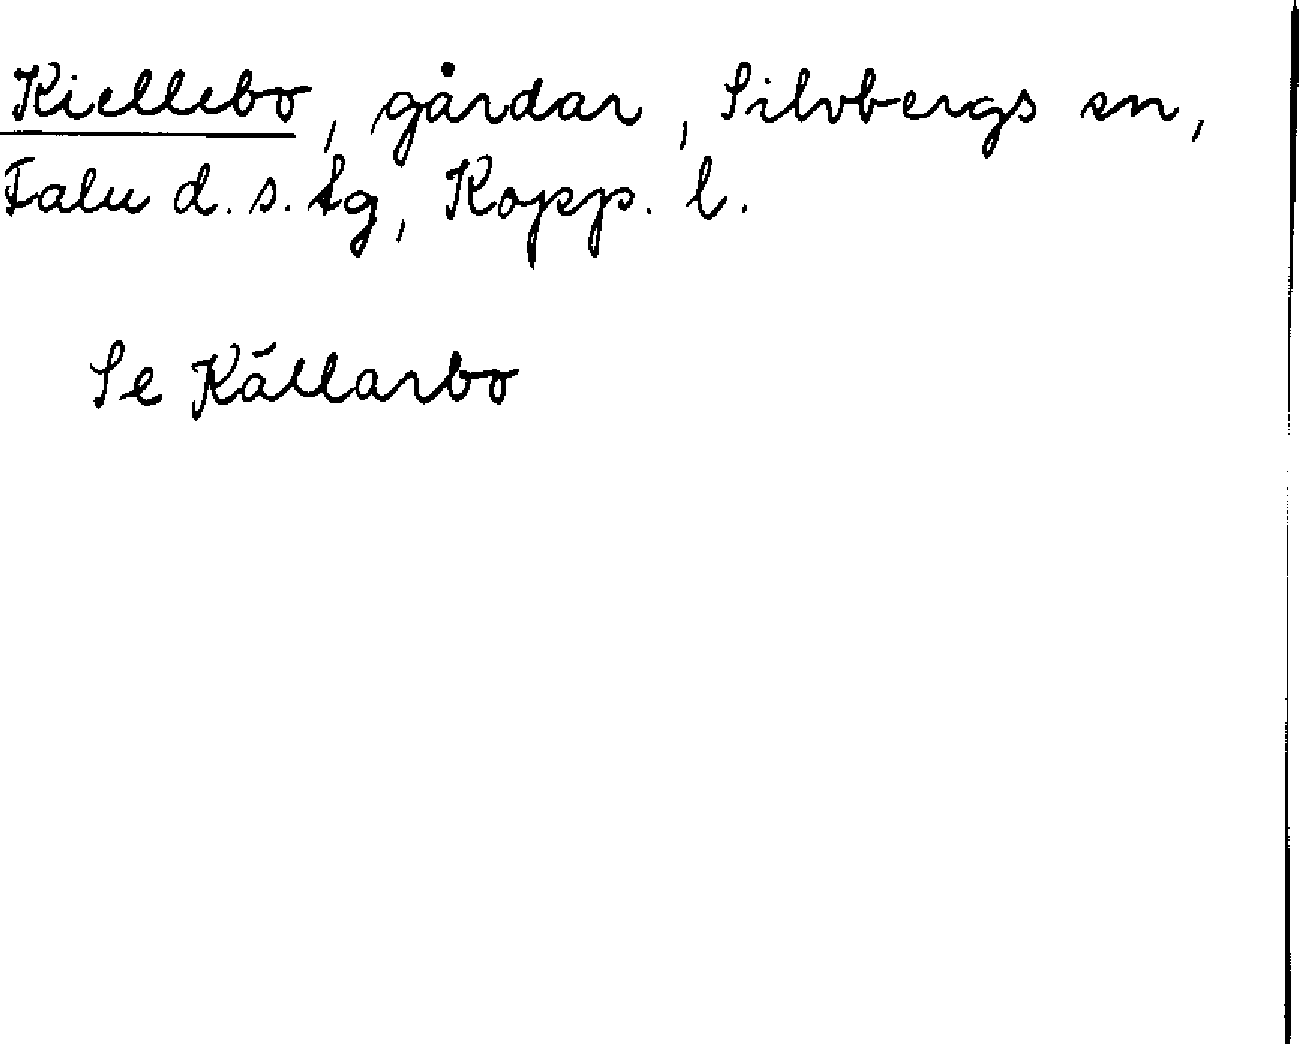 Kiellebo, gårdar, Silvbergs sn,
Falu d. s. tg, Kopp. l.
Se Källarbo